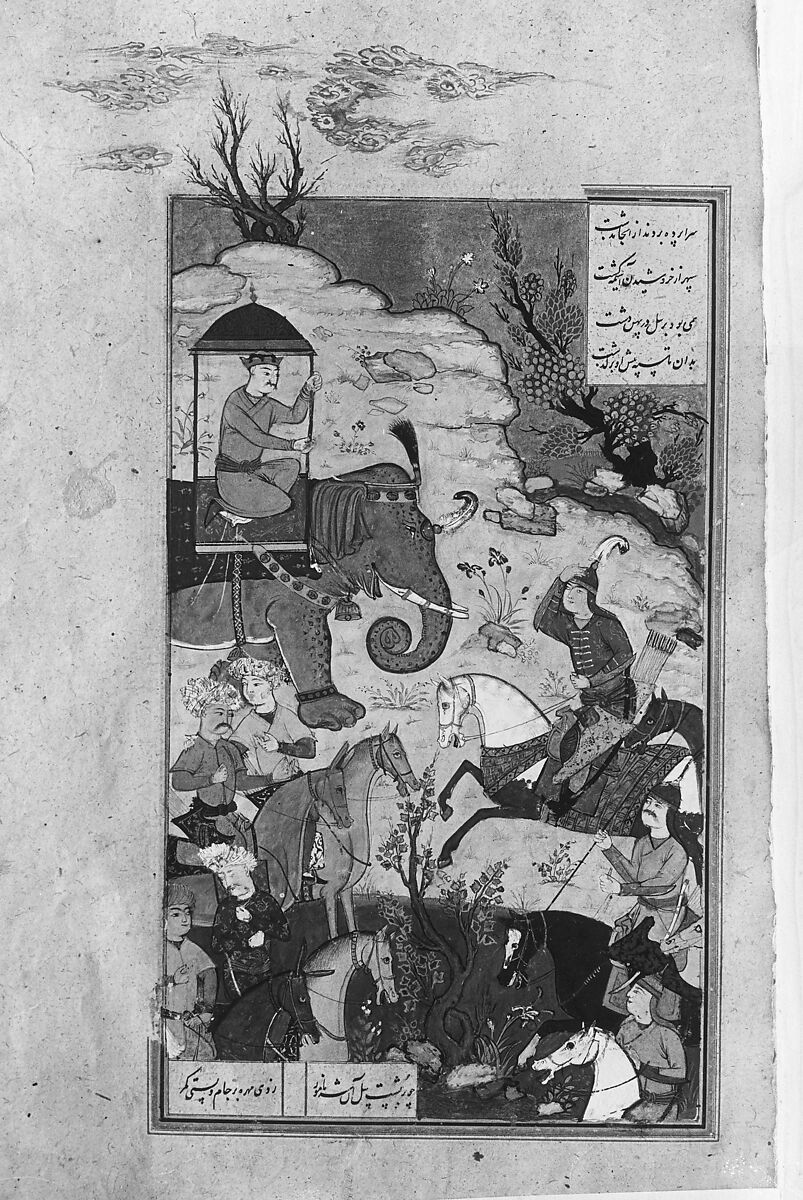 سراپرده بردند از ایوان بدشت
سپهر از خروشیدن آشفته گشت
همی بود بر پیل در پهن دشت
بدان تا سپه پیش او برگذشت
چو بر پشت پیل آن شه نامور
زدی مهره بر جام و بستی کمر